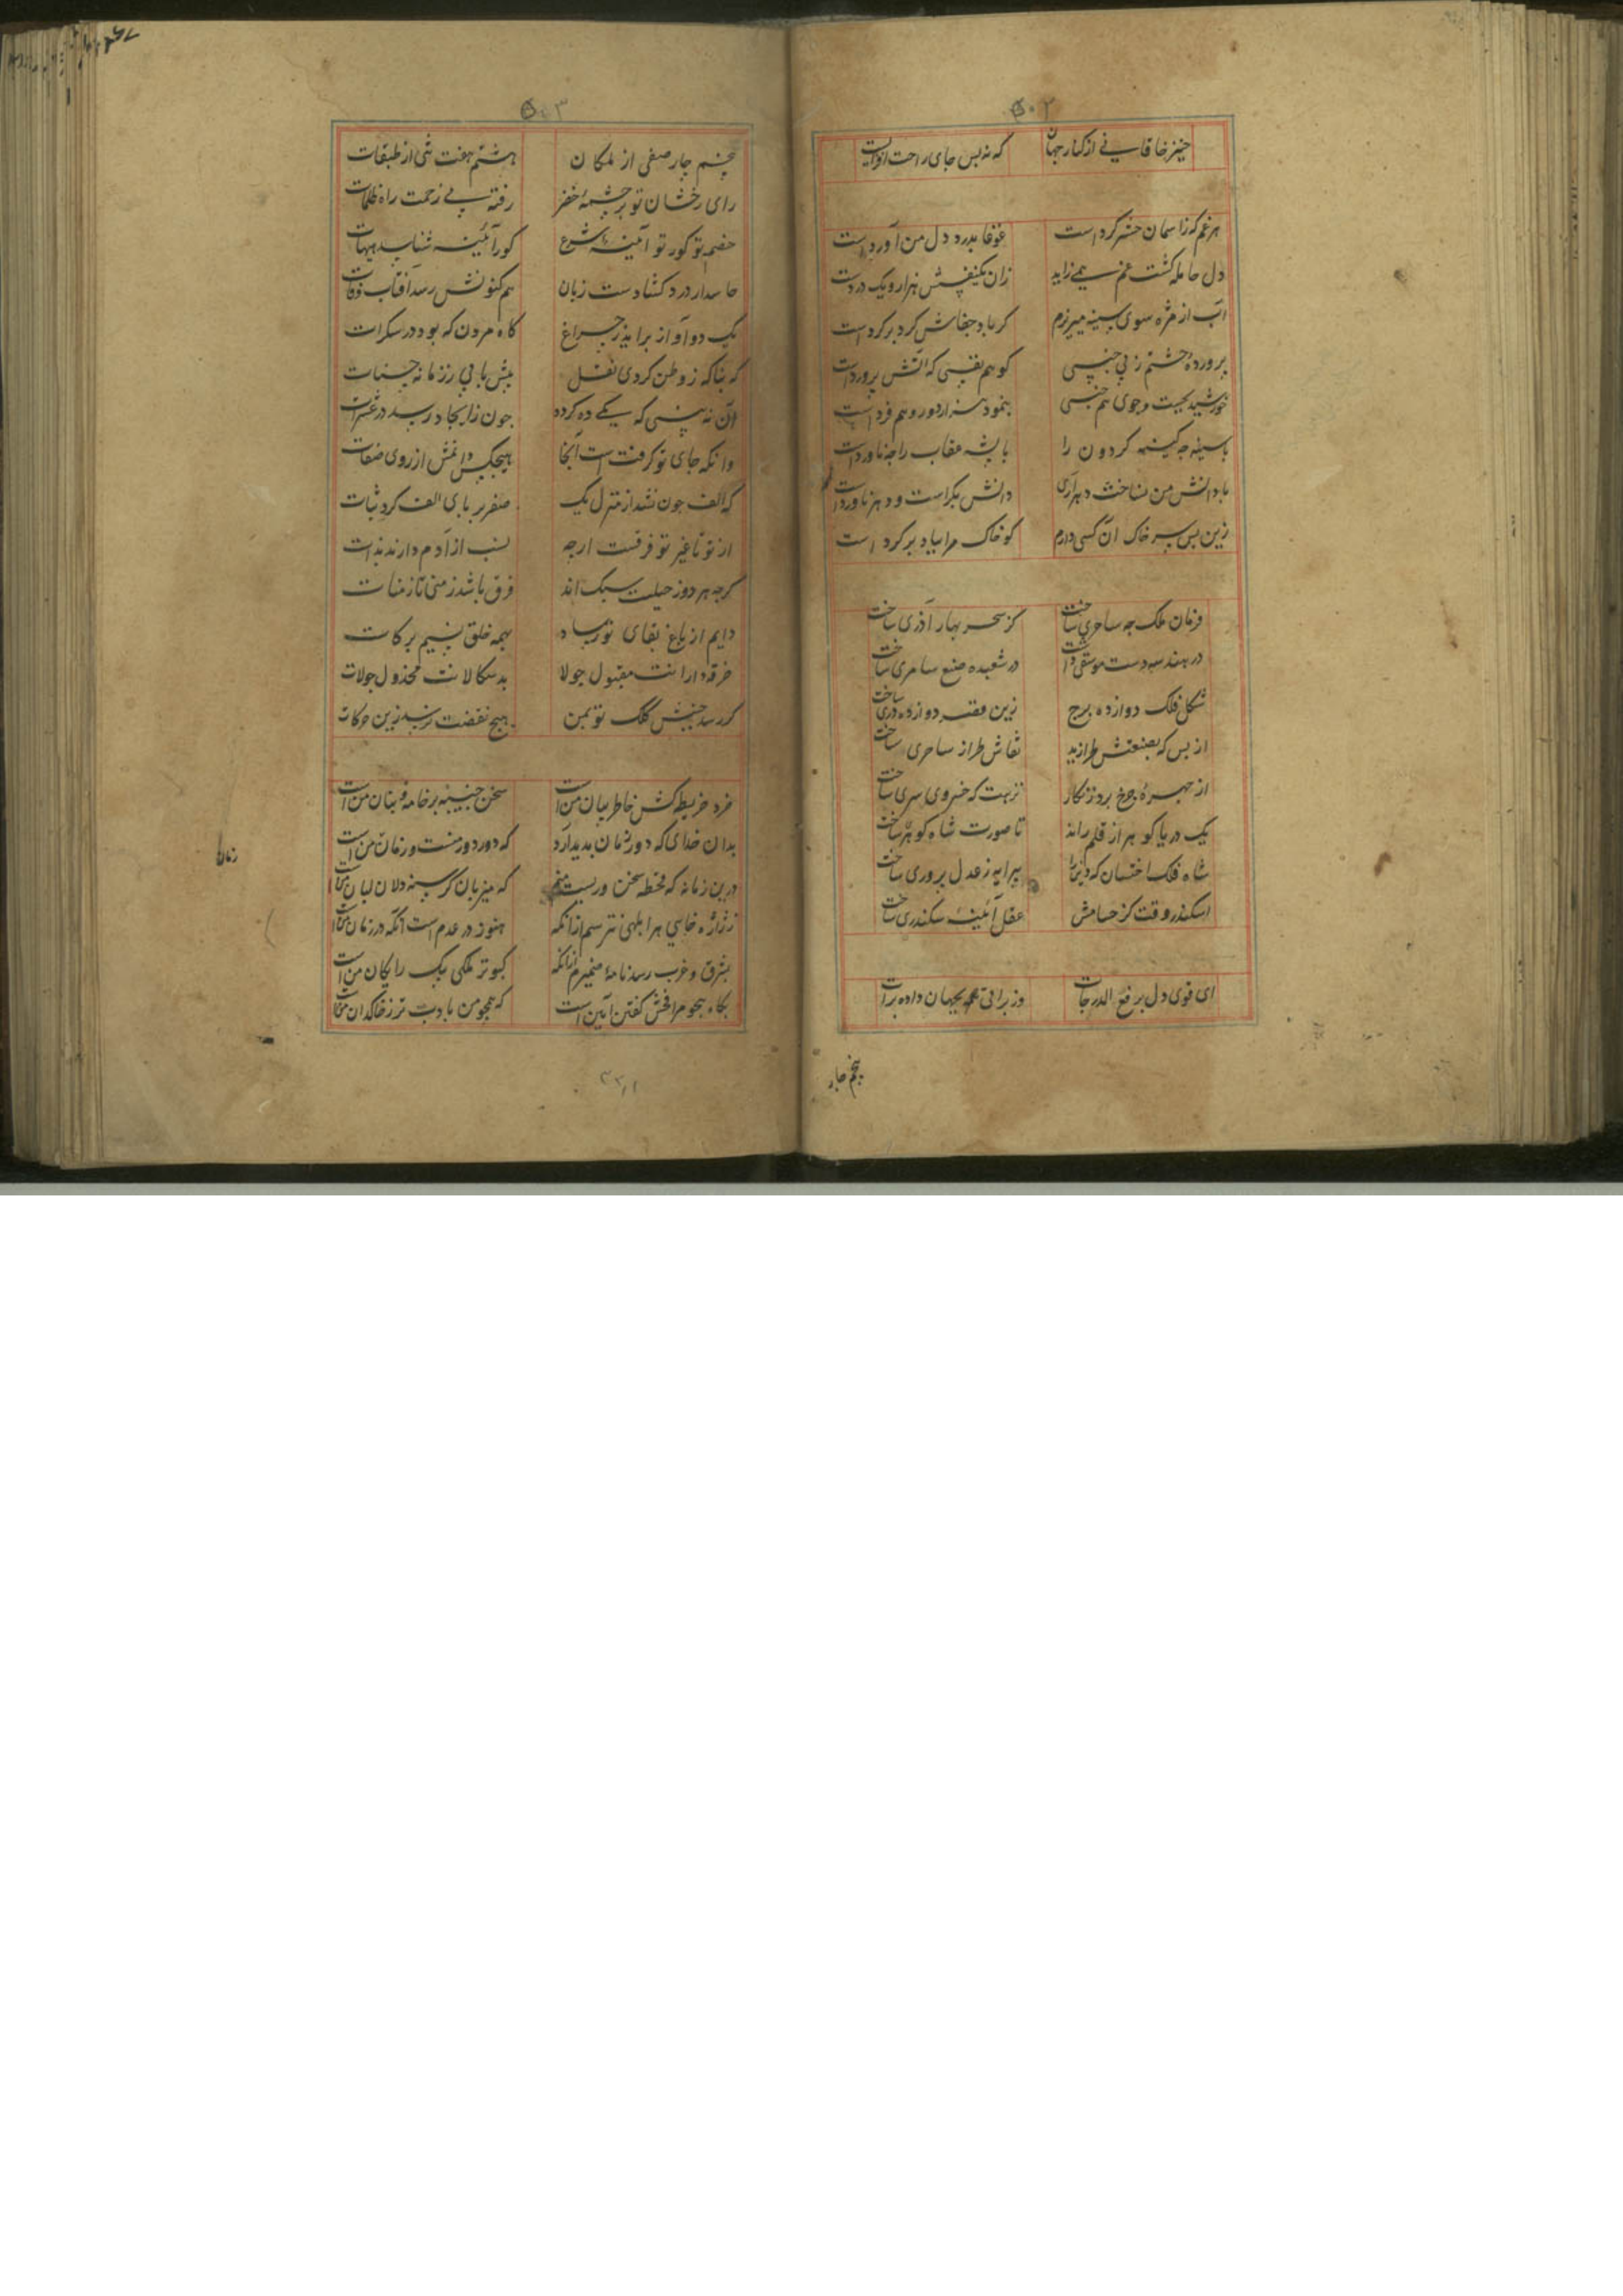 ۵۰۲
خیز خاقانی از کنار جهان که نه بس جای راحت افزایست
هر غم که ز آسمان حشر کردست غوغا بدرد دل من آوردست
دل حامله گشت غم همی زاید زان یکنفسش هزار و یک دردست
آب از مژه سوی سینه میریزم کرباد جفاش کرد بر کردست
پرورده چشتم ز بی جنسی کو هم نفسی که آتش پروردست
خورشید بجست و جوی هم جنسی بنمود هزار دور و هم فردست
با سینه چه کینه گردون را با پشه عقاب را چه ناوردست
با دانش من نساخت دهر آری دانش بکراست و دهر نامردست
زین بس سر خاک آن کسی دارم کو خاک مرا بباد بر کردست
فرمان ملک چه ساحری ساخت کز سحر بهار آذری ساخت
در هندسه دست موسقی داشت در شعبده صنع سامری ساخت
شکل فلک دوازده برج زین قصر دوازده دری ساخت
از بس که بصنعتش طرازید نقاش طراز ساحری ساخت
از چهره چرخ برد زنگار نزهت که خسروی سری ساخت
یک دریا کوهر از قلم راند تا صورت شاه کوهری ساخت
شاه فلک اخستان که دین را پیرایه ز عدل پروری ساخت
اسکندر وقت کز حسامش عقل آئینه سکندری ساخت
ای قوی دل بر فیع الدرجات وز براتی بجهان داده برات
پنجم چار
۵۰۳
پنجم چار صفی از ملکان هشتم هفت تنی از طبقات
رای رخشان تو بر چشمه خضر رفته بی زحمت راه ظلمات
خصم تو کور تو آئینه شرع کور آئینه شناسد هیهات
حاسد ار درد کشادست زبان هم کنونش رسد آفات وفات
یک دو آواز براید ز چراغ گاه مردن که بود در سکرات
که بناکه ز وطن کردی نقل بیش یابی ز زمانه حسنات
آن نه بینی که یکی ده کردد چون ز آحاد رسد در عشرات
وانکه جای تو کرفتست آنجا هیچکس دانمش از روی صفات
که الف چون نشد از منزل یک صفر بر پای الف کرد ثبات
از تو تا غیر تو فرقست ارچه نسب از آدم دارند بذات
کرچه هر دو ز جبلت سبک اند فرق باشد ز منی تا ز منات
دایم از باغ بقای تو رساد بهمه خلق نسیم برکات
خرقه دارانت مقبول چو لا بد سکالانت مخذول چو لات
کر رسد جنبش کلک تو بمن هیچ نقصت نرسد زین حرکات
خرد خریطه کش خاطر بیان من است سخن جنیبه بر خامه و بنان من است
بدان خدای که دور زمان پدید آورد که دور دور منست و زمان زمان من است
درین زمانه که قحط سخن وریست منم که میزبان گرسنه دلان لبان من است
ز ژاژ خایی هر ابلهی نترسم ازانکه هنوز در عدم است آنکه در زمان من است
بشرق و غرب رسد نامه ضمیرم ازانکه کبوتر فلکی پیک رایگان من است
بگاه هجو مرا فحش گفتن آیین است
زمان